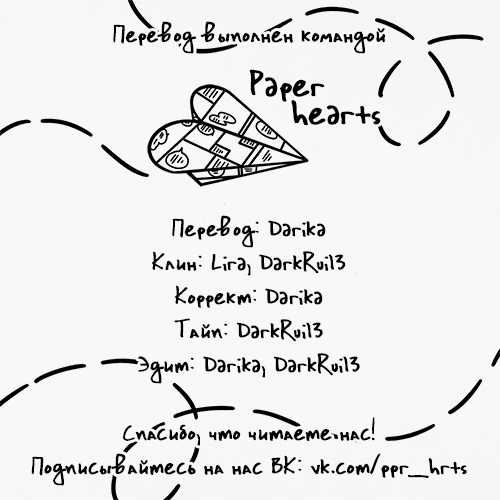 Перевод выполнен командой
Paper
hearts
Перевод: Darika
Клин: Lira, DarkRui13
Коррект: Darika
Тайп: DarkRui13
Эдит: Darika, DarkRui13
Спасибо, что читаете нас!
Подписывайтесь на нас ВК: vk.com/ppr_hrts